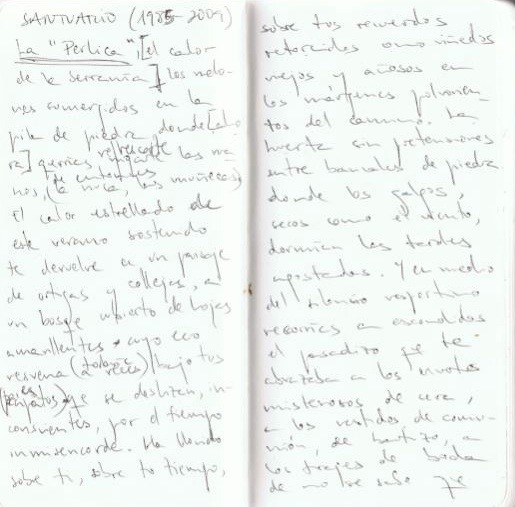 SANTUARIO (1985-2009)
La "Perlica", [el calor
de la serranía] los melo-
nes sumergidos en la
pila de piedra donde [aho-
ra] querrías refrescarte las ma-
de entonces
nos, (la nuca, las muñecas)
El calor estrellado de
este verano sostenido
te devuelve a un paisaje
de ortigas y collejas, a
un bosque cubierto de hojas
amarillentas cuyo eco
resuena (todavía a veces) bajo tus
pies que se deslizan, in-
conscientes, por el tiempo
inmisericorde. Ha llovido
sobre ti, sobre tu tiempo,
sobre tus recuerdos
retorcidos como viñedos
viejos y añosos en
los márgenes polvorien-
tos del camino. La
huerta sin pretensiones
entre bancales de piedra
donde los galgos,
secos como el viento,
dormían las tardes
agostadas. Y en medio
del silencio vespertino
recorrías a escondidas
el pasadizo que te
abrazaba a los exvotos
misteriosos de cera, a
a los vestidos de comu-
nión, de bautizo, a
los trajes de boda
de no se sabe que